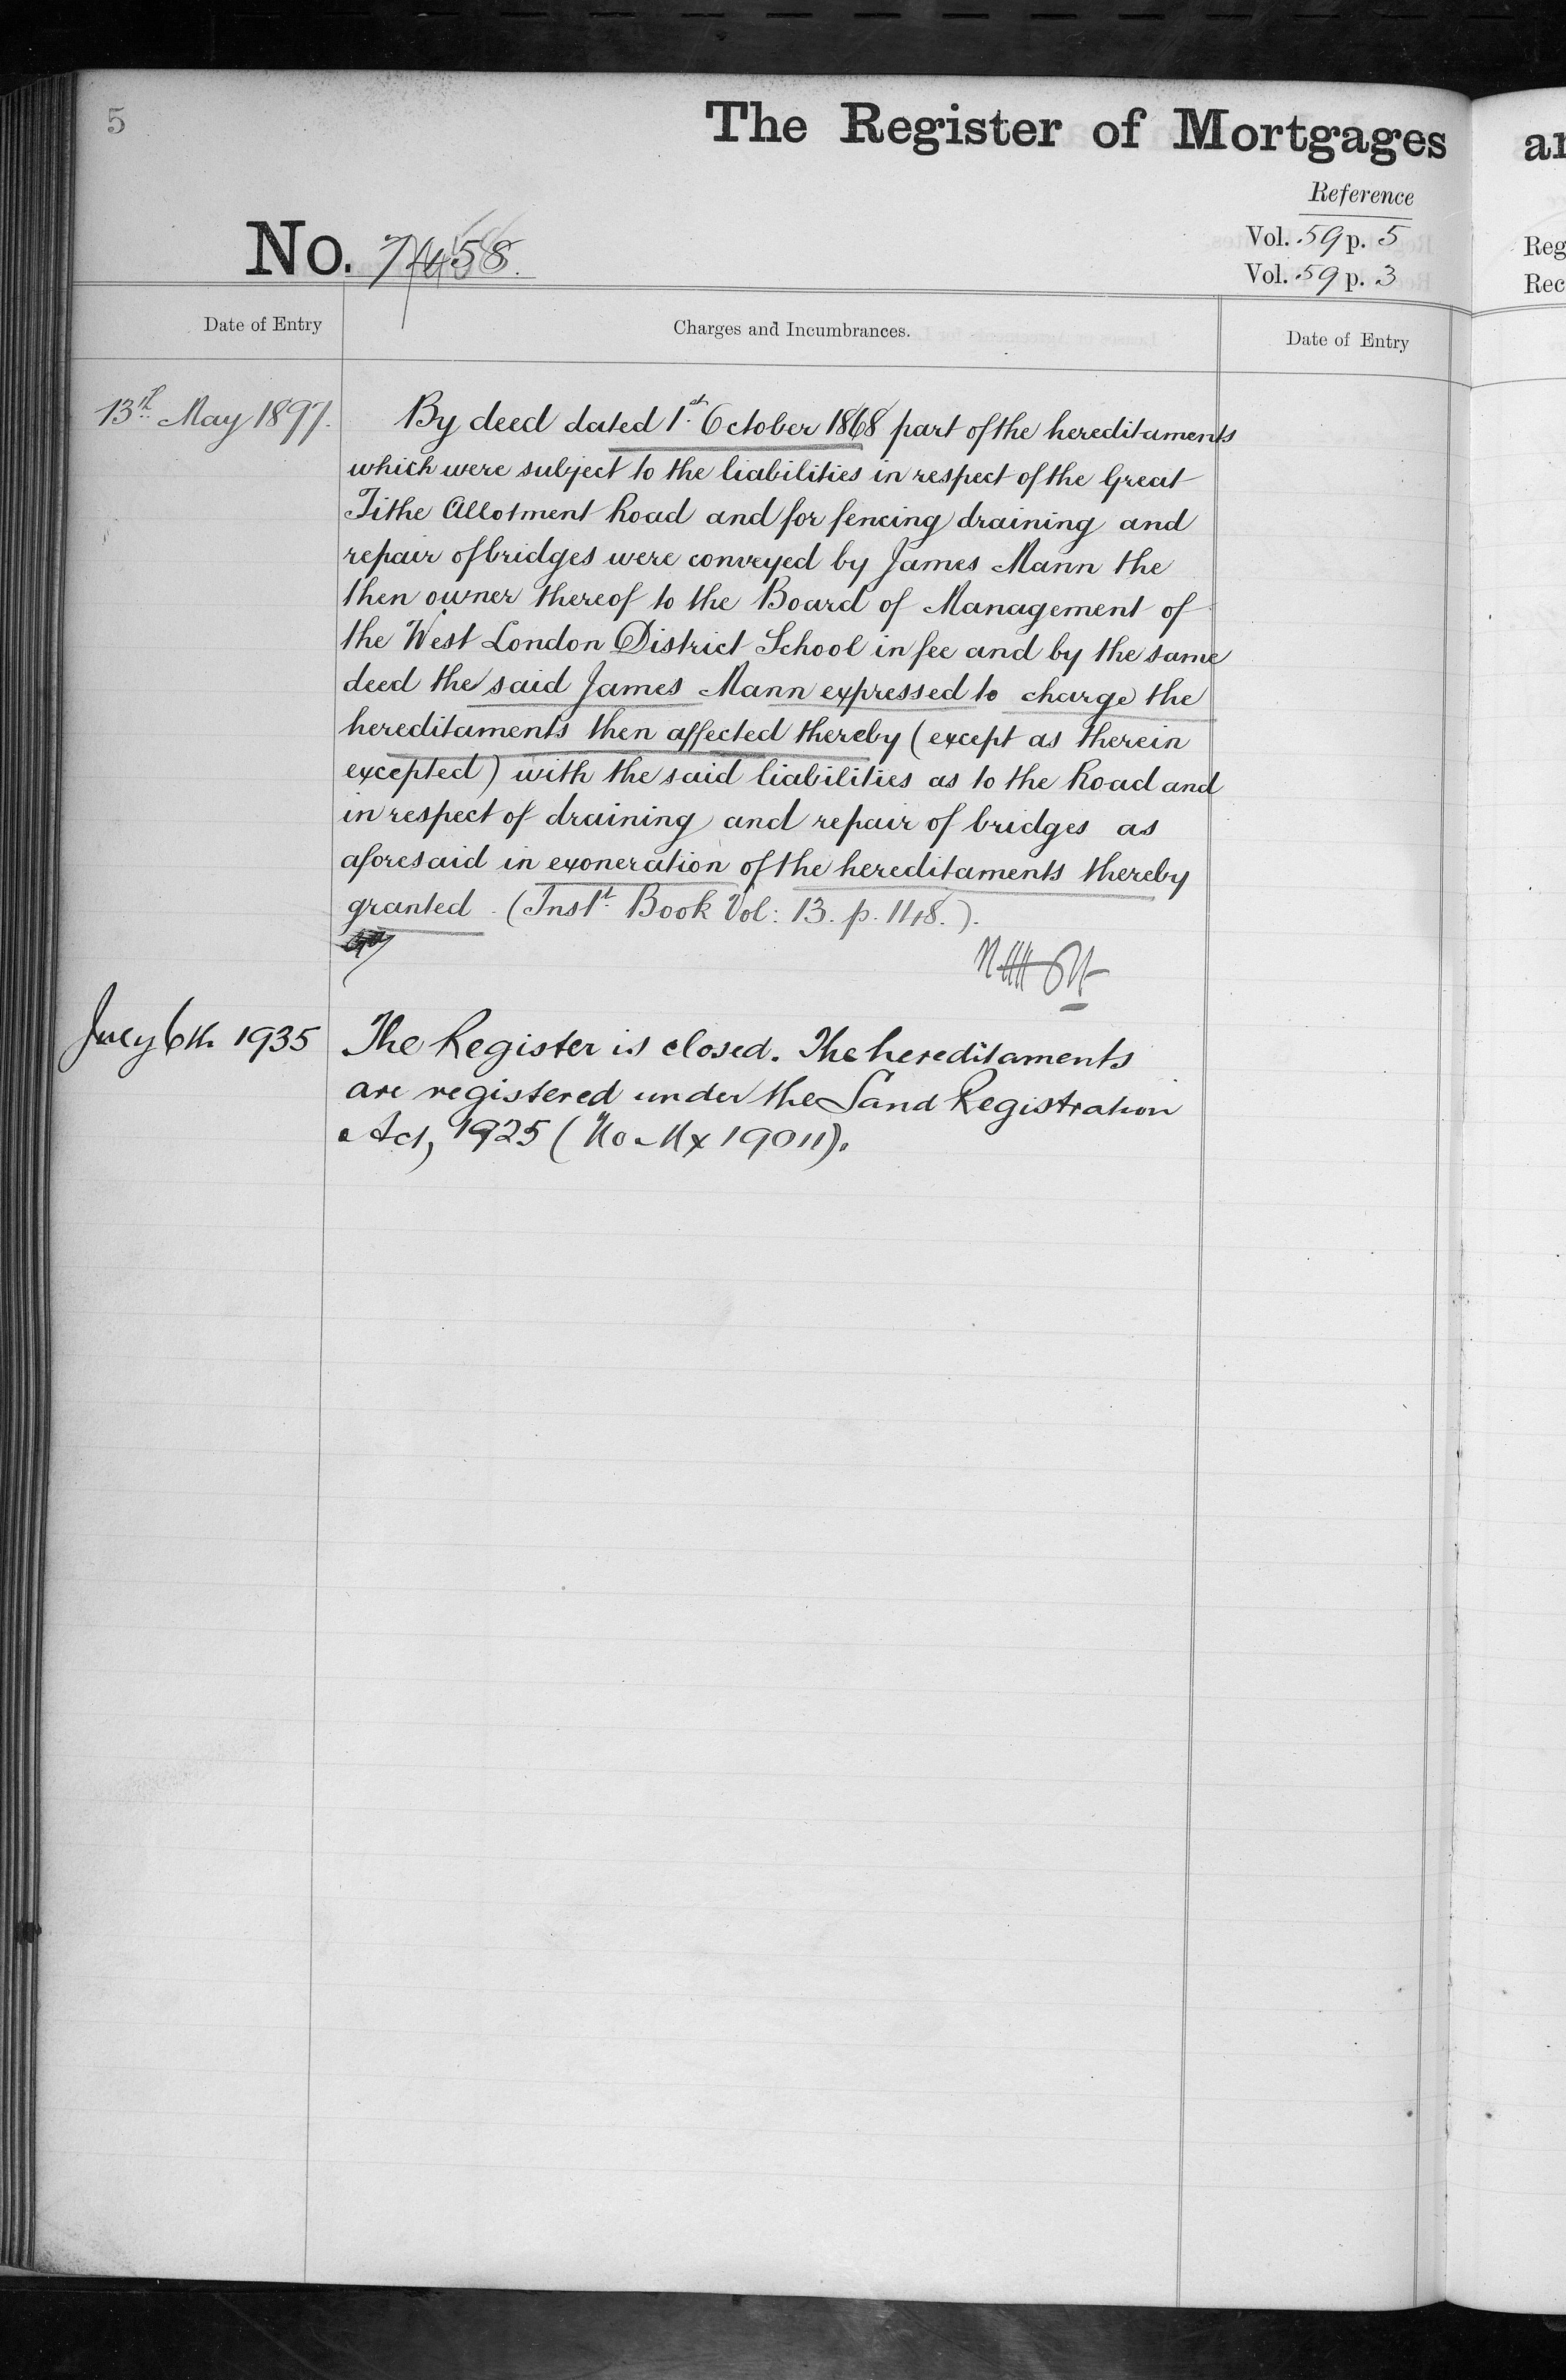 5
The Register of Mortgages
Reference
No. 7458.
Vol. 59 p. 5
Vol. 59 p. 3
Date of Entry
Charges and Incumbrances.
Date of Entry
13th May 1897.
By deed dated 1st October 1868 part of the hereditaments
which were subject to the liabilities in respect of the Great
Tithe Allotment Road and for fencing draining and
repair of bridges were conveyed by James Mann the
then owner thereof to the Board of Management of
the West London District School in fee and by the same
deed the said James Mann expressed to charge the
hereditaments then affected thereby (except as therein
excepted) with the said liabilities as to the Road and
in respect of draining and repair of bridges as
aforesaid in exoneration of the hereditaments thereby
granted. (Instt. Book Vol: 13. p. 148.).
July 6th 1935
The Register is closed. The hereditaments
are registered under the Land Registration
Act, 1925 (No Mx 19011).
ar
Reg
Rec